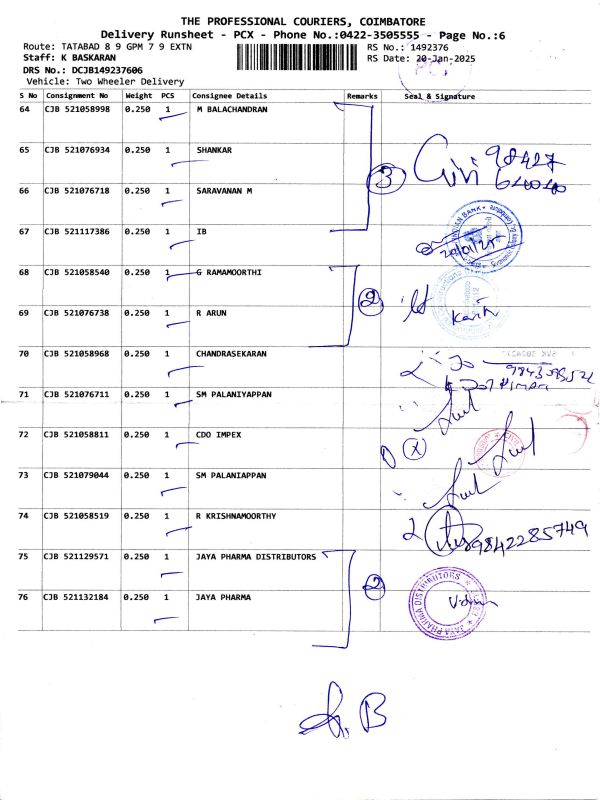 THE PROFESSIONAL COURIERS, COIMBATORE
Delivery Runsheet - PCX - Phone No.:0422-3505555 - Page No.:6
Route: TATABAD 8 9 GPM 7 9 EXTN RS No.: 1492376
Staff: K BASKARAN RS Date: 20-Jan-2025
DRS No.: DCJB149237606
Vehicle: Two Wheeler Delivery
S No Consignment No Weight PCS Consignee Details Remarks Seal & Signature
64 CJB 521058998 0.250 1 M BALACHANDRAN
65 CJB 521076934 0.250 1 SHANKAR
3 98427
66 CJB 521076718 0.250 1 SARAVANAN M
67 CJB 521117386 0.250 1 IB
20/01/25
68 CJB 521058540 0.250 1 G RAMAMOORTHI
2
69 CJB 521076738 0.250 1 R ARUN
70 CJB 521058968 0.250 1 CHANDRASEKARAN
71 CJB 521076711 0.250 1 SM PALANIYAPPAN
72 CJB 521058811 0.250 1 CDO IMPEX
73 CJB 521079044 0.250 1 SM PALANIAPPAN
74 CJB 521058519 0.250 1 R KRISHNAMOORTHY
9842285749
75 CJB 521129571 0.250 1 JAYA PHARMA DISTRIBUTORS
2
76 CJB 521132184 0.250 1 JAYA PHARMA
JAYA PHARMA DISTRIBUTORS